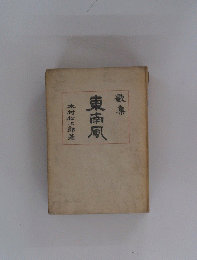 歌集
東南風
木村松二郎著